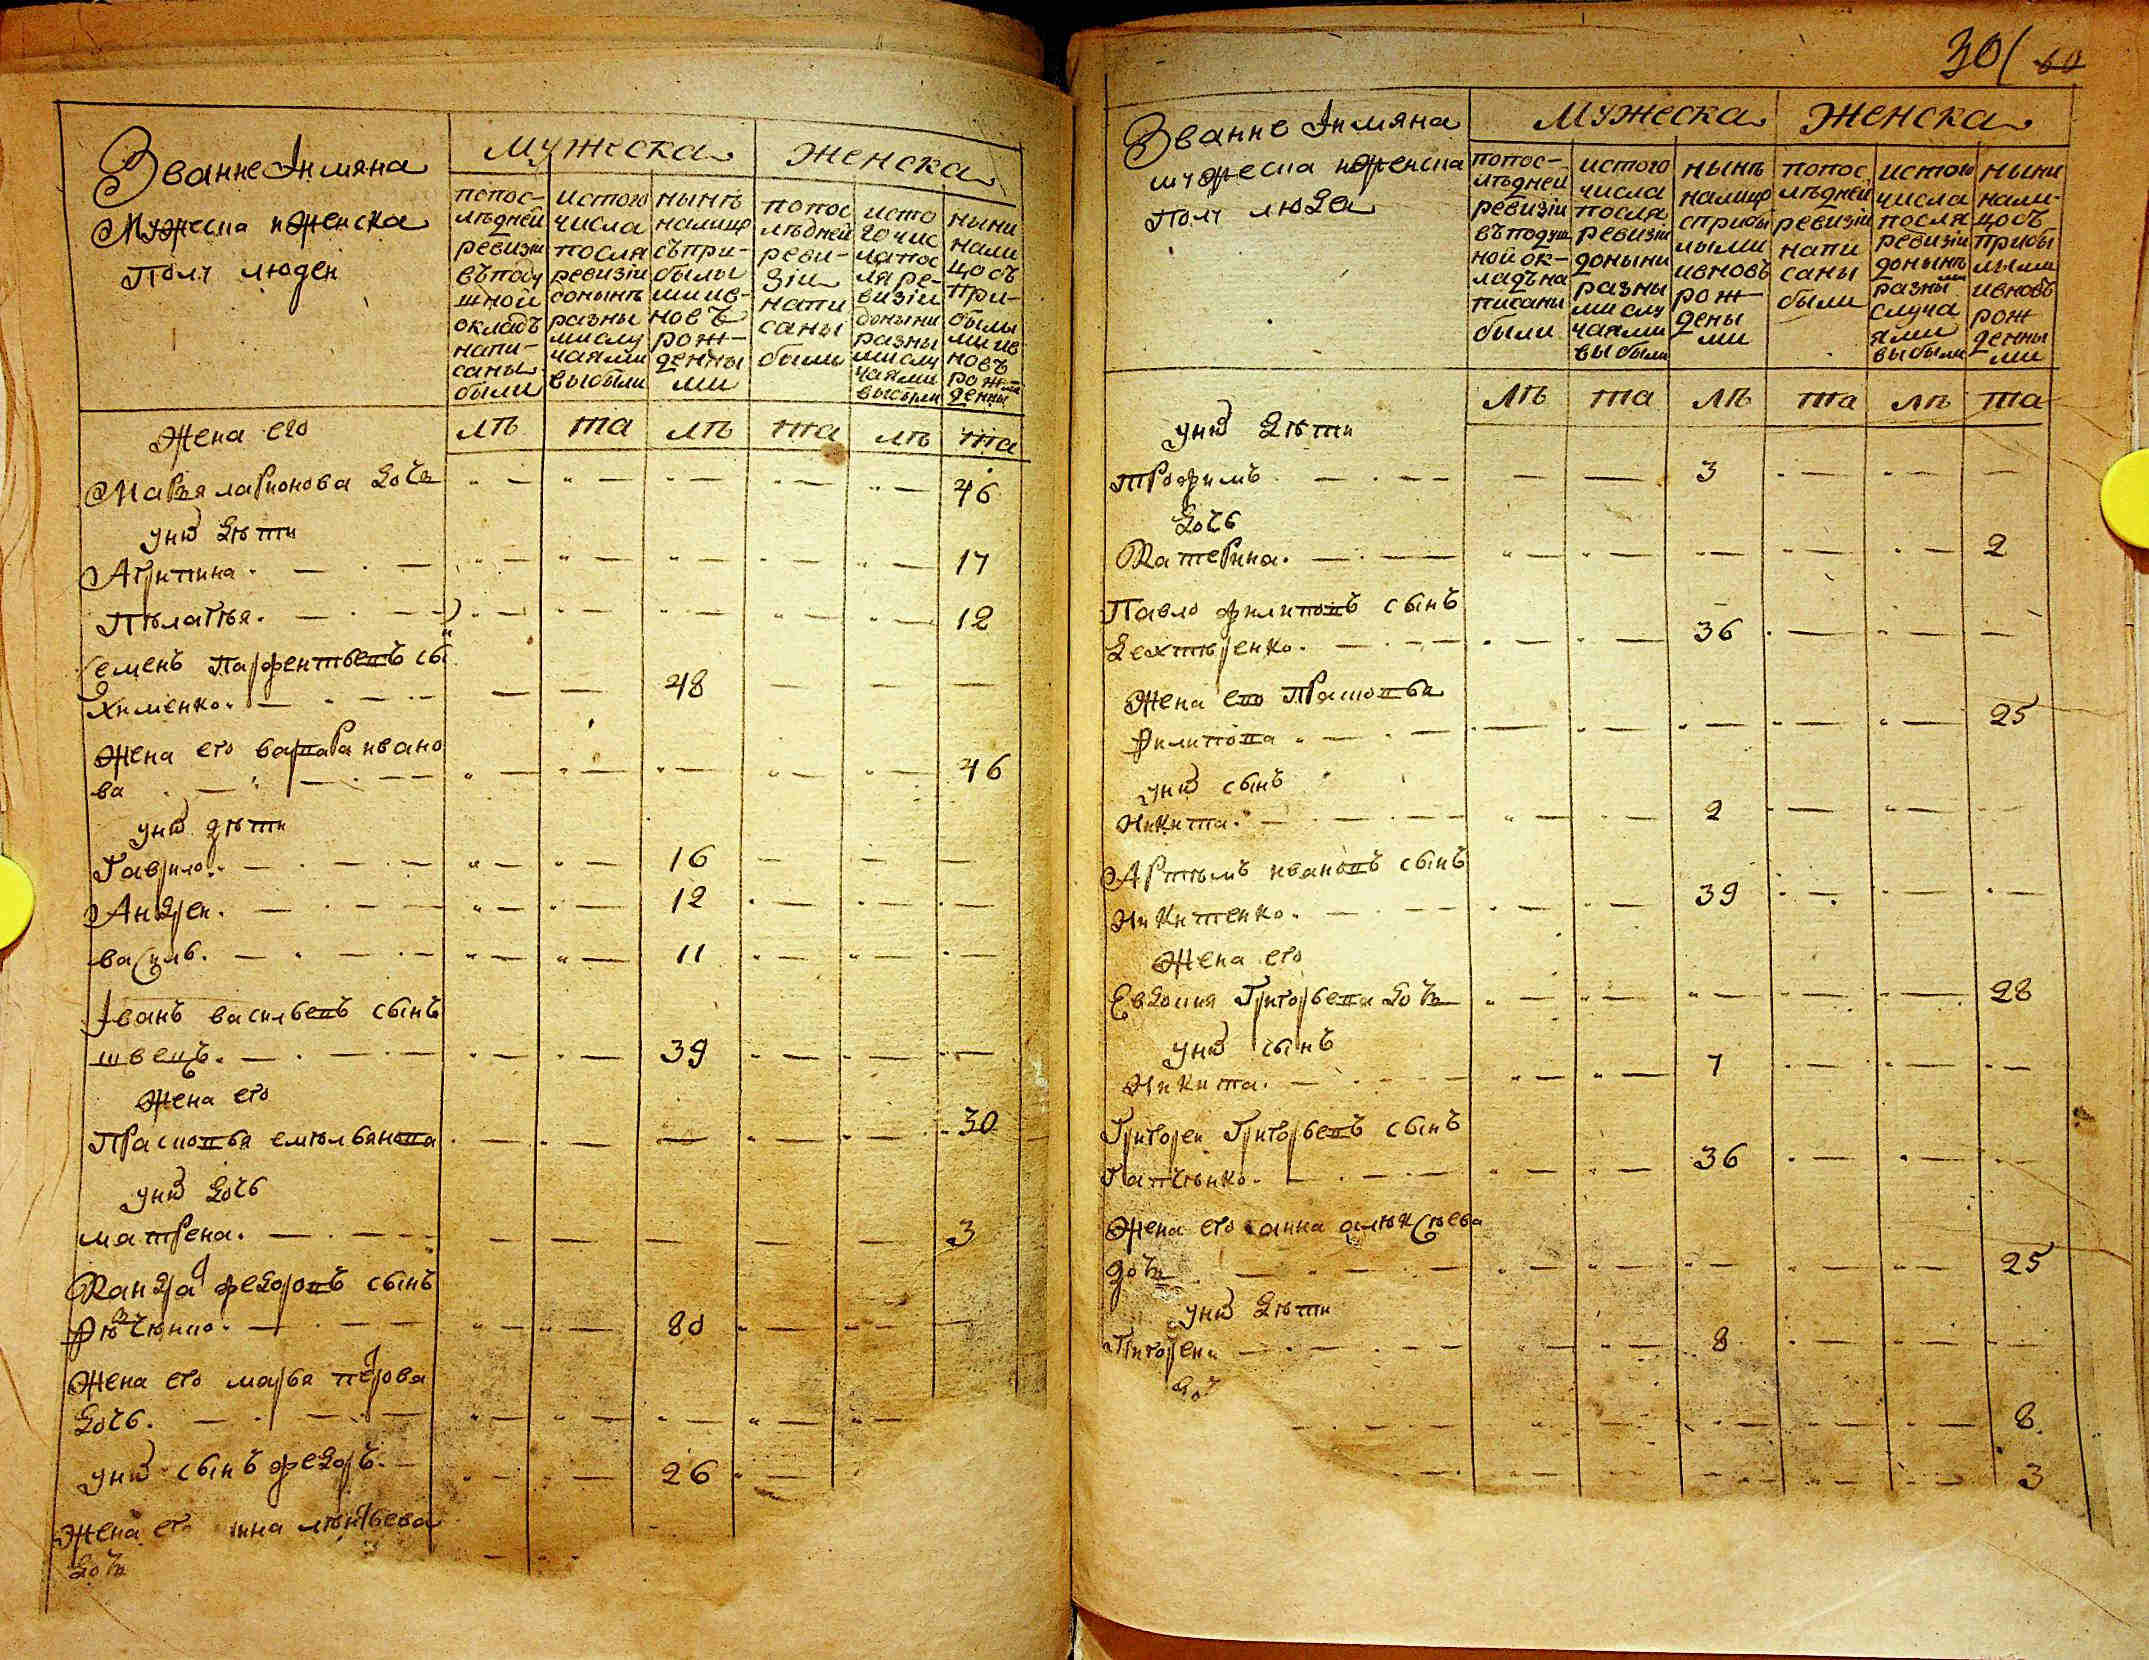 30 60
Званне Імяна
Мужеска иженска
Полу людеи
мужеска
женска
попос-
лѣдней
ревизіи
въподу
шной
окладъ
напи-
саны
были
истого
числа
посля
ревизіи
донынѣ
разны
мислу
чаями
выбыли
нынѣ
налицо
съпри-
былы
миив-
новъ
рож-
денны
ми
попос
лѣдней
реви-
зіи
напи
саны
были
исто
гочис
лапос
ляре-
визіи
доныни
разны
мислу
чаями
выбыли
ныни
нали
цосъ
при-
былы
миив
новъ
рож
денны
лѣ та лѣ та лѣ та
Жена его
Марья ларионова дочь 46
унив дѣти
Агрипина 17
Пѣлагѣя 12
Семенъ Парфентьевъ сынъ
Яхименко 48
Жена его варвара ивано
ва 46
унив дѣти
Гаврило 16
Андреи 12
василь 11
Іванъ васильевъ сынъ
швецъ 39
Жена его
Прасковья емѣльянова 30
унив дочь
матрена 3
Кандрат федоровъ сынъ
80
Жена его марья петрова
дочь
унив сынъ федоръ 26
Жена его
дочь
Званне Імяна
мужеска иженска
Полу люде
мужеска
женска
попос-
лѣдней
ревизіи
въподуш
ной ок-
ладъна
писаны
были
истого
числа
посля
ревизіи
доныни
разны
мислу
чаями
выбыли
нынѣ
налицо
сприбы
лыми
ивновъ
рож-
дены
ми
попос
лѣдней
ревизіи
напи
саны
были
истого
числа
посля
ревизіи
донынѣ
разны
случа
ями
выбыли
ныни
нали-
цосъ
прибы
лыми
ивновъ
рож
денны
ми
лѣ та лѣ та лѣ та
унив дѣти
Трофимъ 3
дочь
Катерина 2
Павло филиповъ сынъ
Дехтяренко 36
Жена его Прасковья
Филипова 25
унив сынъ
Никита 2
Артѣмъ ивановъ сынъ
Никитенко 39
Жена его
Евдокия Григорьева дочь 28
унив сынъ
Никита 7
Григореи Григорьевъ сынъ
36
Жена его анна алѣксѣева
дочь 25
унив дѣти
Григореи 8
доч
8
3